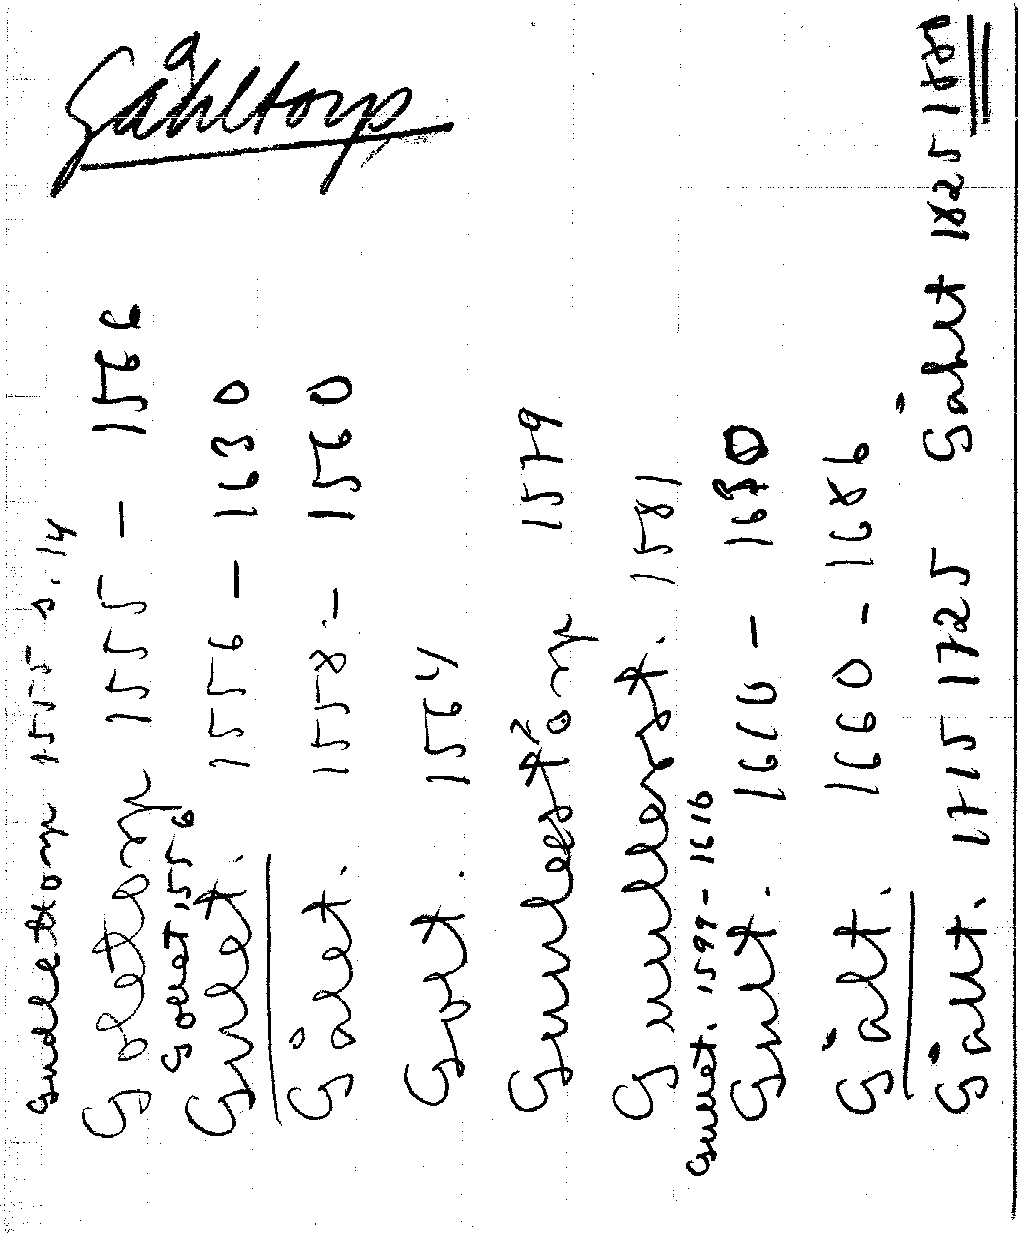 Gåhltorp
Gudlettorp 1555 s. 14
Goletorp 1555 - 1566
Gollet 1556
Gulet. 1556 - 1630
Gålet. 1558 - 1560
Golt. 1564
Gunlestorp 1579
Gunllerst. 1581
Gullet. 1599 - 1616
Gult. 1610 - 1680
Gålt. 1660 - 1686
Gålt. 1715 1725 Gåhlt 1825 1881